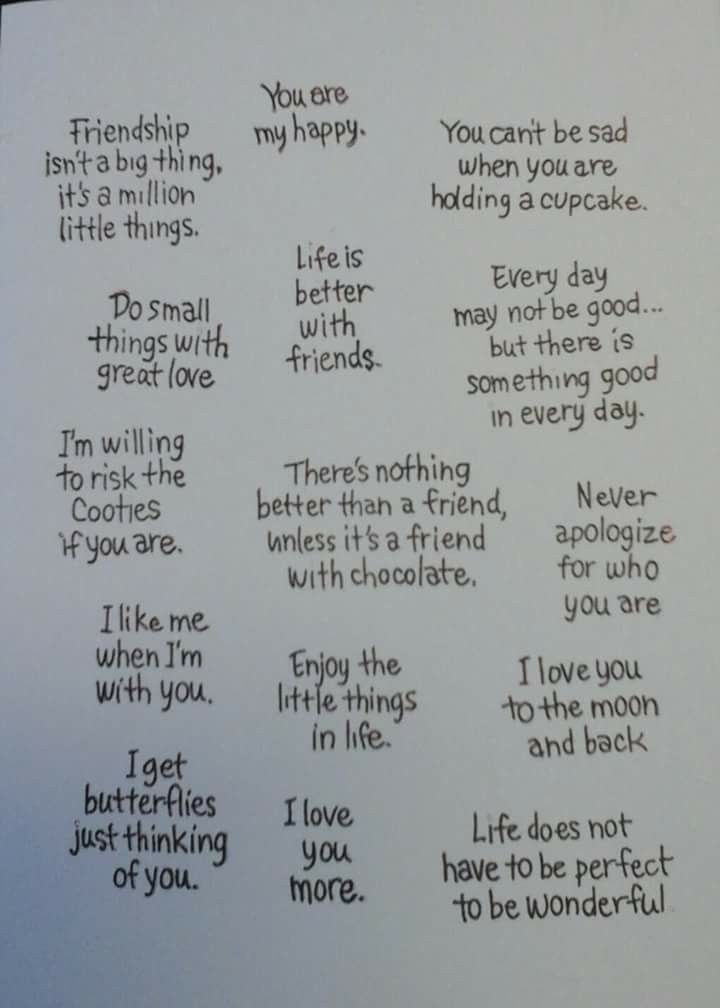 You are
my happy.
Friendship
isn't a big thing,
it's a million
little things.
You can't be sad
when you are
holding a cupcake.
Life is
better
with
friends.
Do small
things with
great love
Every day
may not be good...
but there is
something good
in every day.
I'm willing
to risk the
Cooties
if you are.
There's nothing
better than a friend,
unless it's a friend
with chocolate.
Never
apologize
for who
you are
I like me
when I'm
with you.
Enjoy the
little things
in life.
I love you
to the moon
and back
I get
butterflies
just thinking
of you.
I love
you
more.
Life does not
have to be perfect
to be wonderful